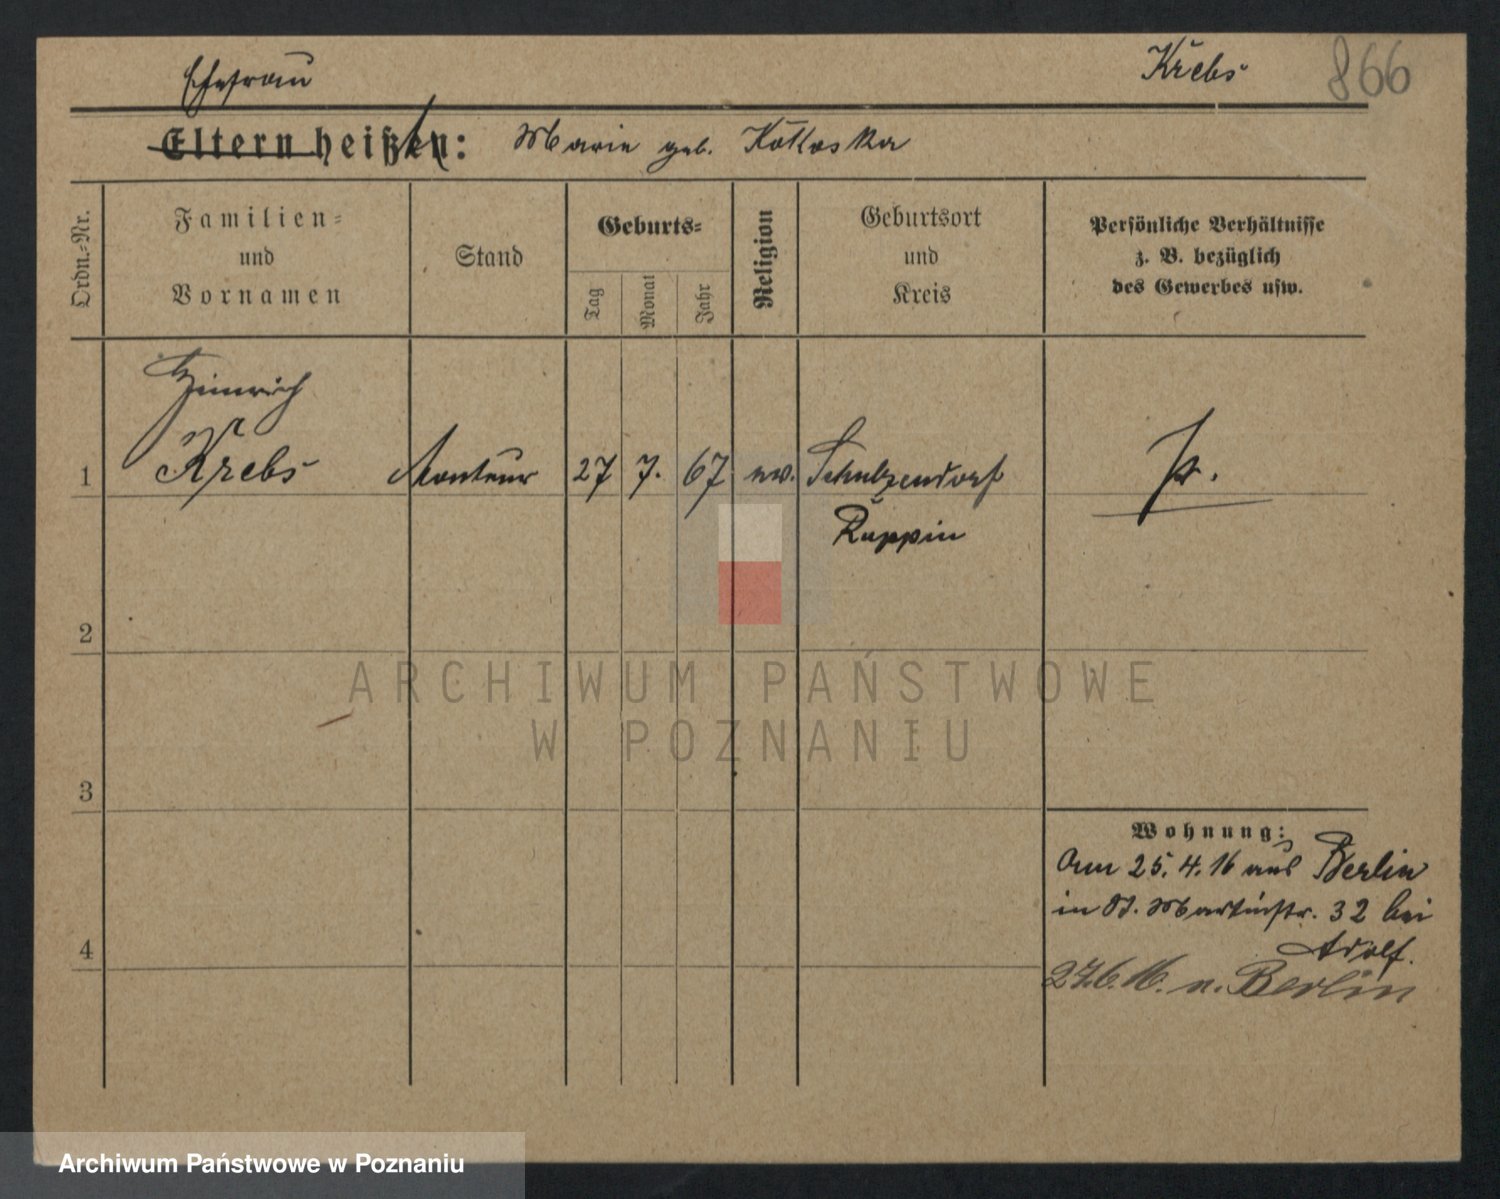 Ehefrau Krebs 866
Eltern heißen: Marie geb. Kottoska
Ordn.-Nr.
Familien-
und
Vornamen
Stand
Geburts-
Tag
Monat
Jahr
Religion
Geburtsort
und
Kreis
Persönliche Verhältnisse
z. B. bezüglich
des Gewerbes usw.
Heinrich
1 Krebs Monteur 27 7. 67 ev. Schulzendorf Pr.
Ruppin
2
3
4
Wohnung:
Am 25.4.16 aus Berlin
in St. Martinstr. 32 bei
Adolf.
27.6.16. n. Berlin
ARCHIWUM PAŃSTWOWE
W POZNANIU
Archiwum Państwowe w Poznaniu